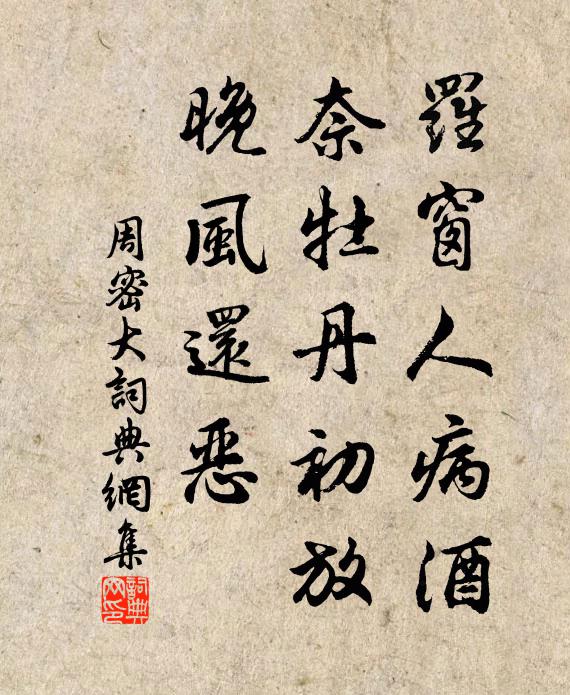 羅窗人病酒
奈牡丹初放
晚風還惡
周密大詞典網集